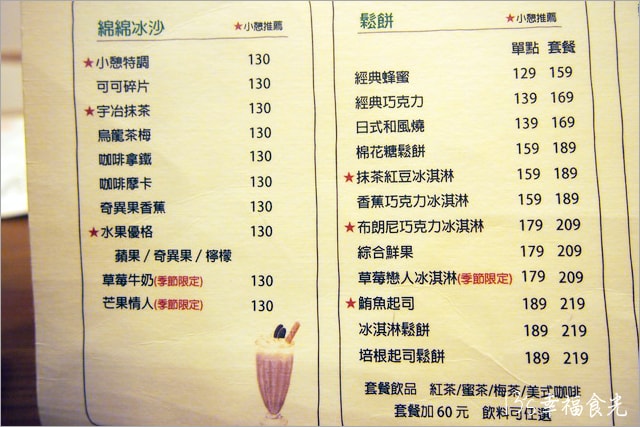 綿綿冰沙 ★小憩推薦
★小憩特調 130
可可碎片 130
★宇冶抹茶 130
烏龍茶梅 130
咖啡拿鐵 130
咖啡摩卡 130
奇異果香蕉 130
★水果優格 130
蘋果/奇異果/檸檬
草莓牛奶(季節限定) 130
芒果情人(季節限定) 130
鬆餅 ★小憩推薦
單點 套餐
經典蜂蜜 129 159
經典巧克力 139 169
日式和風燒 139 169
棉花糖鬆餅 159 189
★抹茶紅豆冰淇淋 159 189
香蕉巧克力冰淇淋 159 189
★布朗尼巧克力冰淇淋 179 209
綜合鮮果 179 209
草莓戀人冰淇淋(季節限定) 179 209
★鮪魚起司 189 219
冰淇淋鬆餅 189 219
培根起司鬆餅 189 219
套餐飲品 紅茶/蜜茶/梅茶/美式咖啡
套餐加60元 飲料可任選
幸福食光